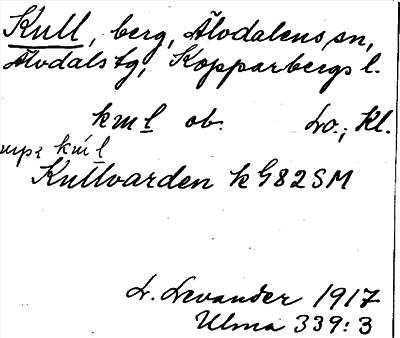 Kull, berg, Älvdalens sn,
Älvdals tg, Kopparbergs l.
kml ob. Lo., Kl.
kml
Kullvarden k G82SM
L. Levander 1917
Ulma 339:3